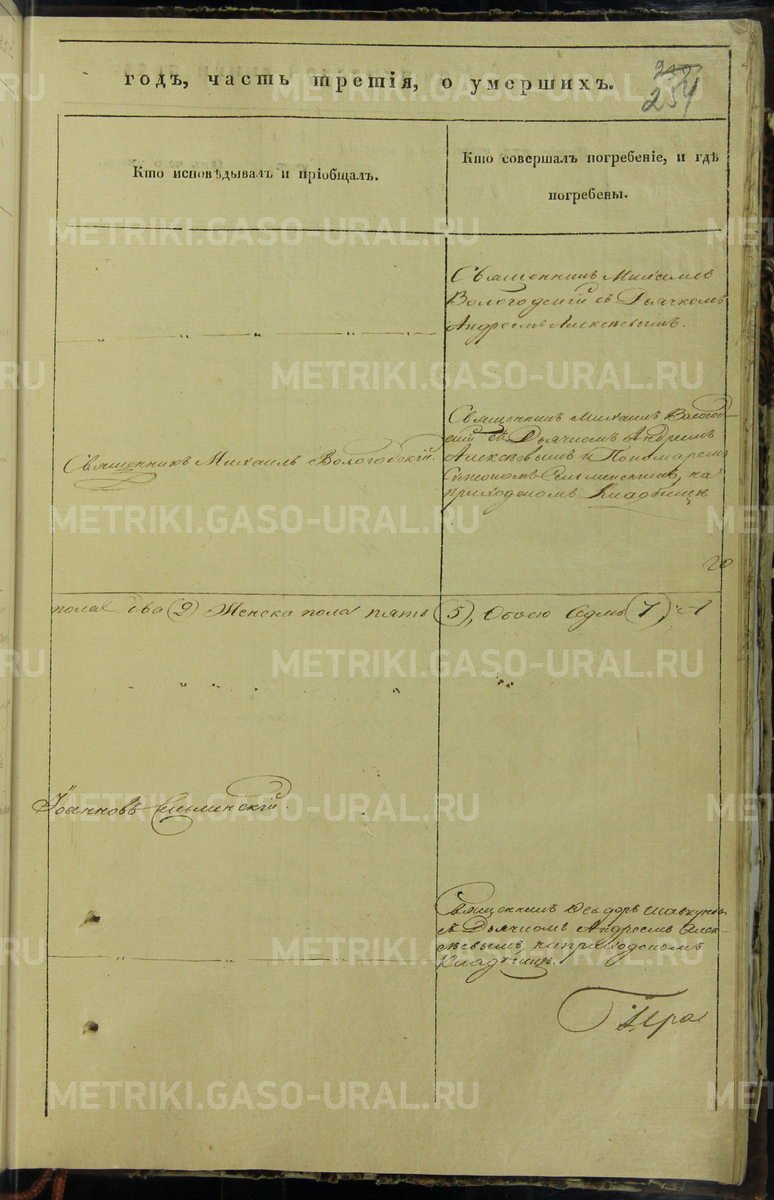 годъ, часть третія, о умершихъ.
254
Кто исповѣдывалъ и пріобщалъ.
Кто совершалъ погребеніе, и гдѣ
погребены.
Священникъ Михаилъ
Вологодскій съ Дьячкомъ
Андреемъ Алексѣевымъ.
Священникъ Михаилъ Вологодскій.
Священникъ Михаилъ Вологод-
скій съ Дьячкомъ Андреемъ
Алексѣевымъ и Пономаремъ
на
приходскомъ Кладбищѣ
пола два (2) Женска пола пять (5), Обоего Седмь (7),
Іоанновъ
Священникъ Ѳеодоръ
съ Дьячкомъ Андреемъ Алек-
сѣевымъ на приходскомъ
Кладбищѣ.
METRIKI.GASO-URAL.RU